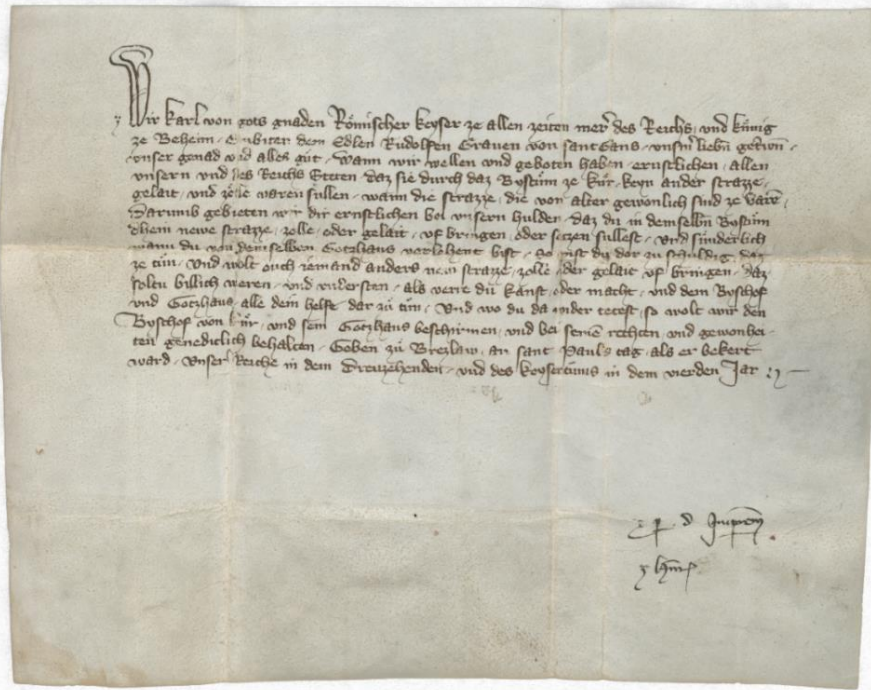 Wir Karl von gots gnaden Römischer keyser ze allen zeiten merer des Reichs, und kunig
ze Beheim, Embiten dem Edlen Rudolfen Graven von sant Gans, unserm liebn getrewn,
unser genad und alles gut, Wann wir wellen und geboten haben, ernstlichen, allen
unsern und des Reichs Steten, daz sie durch daz Bystum ze Kur, keyn ander strazze,
gelait, und zolle waren sullen, wann die strazze, die von alter gewonlich sind ze varen,
Darumb gebieten wir dir ernstlichen bei unsern hulden, daz du in demselbn Bystum
dhein newe strazze, zolle, oder gelait, uf bringen, oder setzen sullest, Und sunderlich
wann du von demselben Gotzhaus verlehent bist, So pist du dor zu schuldig, daz
ze tun, Und wolt ouch iemand anders new strazze, zolle, oder gelait uf bringen, daz
soltu billich weren, und understen, als verre du kanst, oder macht, und dem Byschof
und Gotzhaus, alle dein helfe, dar zu tun, Und wo du da wider tetest, so wolt wir den
Byschof von Kur, und sein Gotzhaus beschirmen, und bei seinen rechten, und gewonhei-
ten genediclich behalten, Geben zu Brezlaw, an sant Pauls tag, als er bekert
ward, Unser Reiche in dem Dreuzehenden, und des keysertums in dem vierden Jar
p d Imperatorem